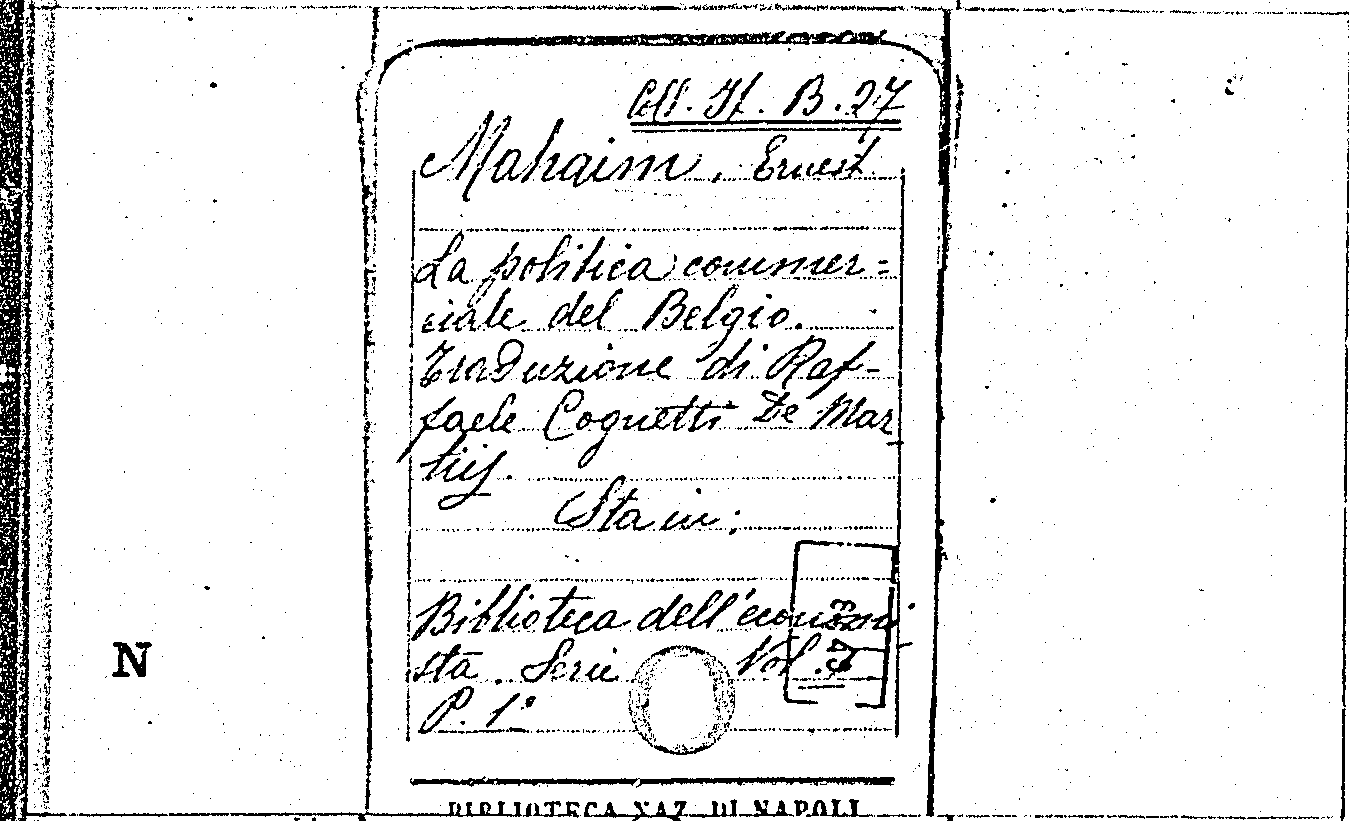 Coll. It. B. 27
Mahaim, Ernest
La politica commer=
ciale del Belgio.
Traduzione di Raf-
faele Cognetti De Mar
tiis.
Sta in:
Biblioteca dell'economi
sta. Serie Vol.
P. 1ª
N
BIBLIOTECA NAZ. DI NAPOLI